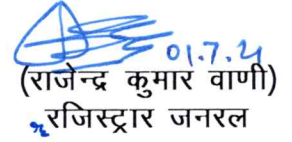 01.7.21
(राजेन्द्र कुमार वाणी)
रजिस्ट्रार जनरल